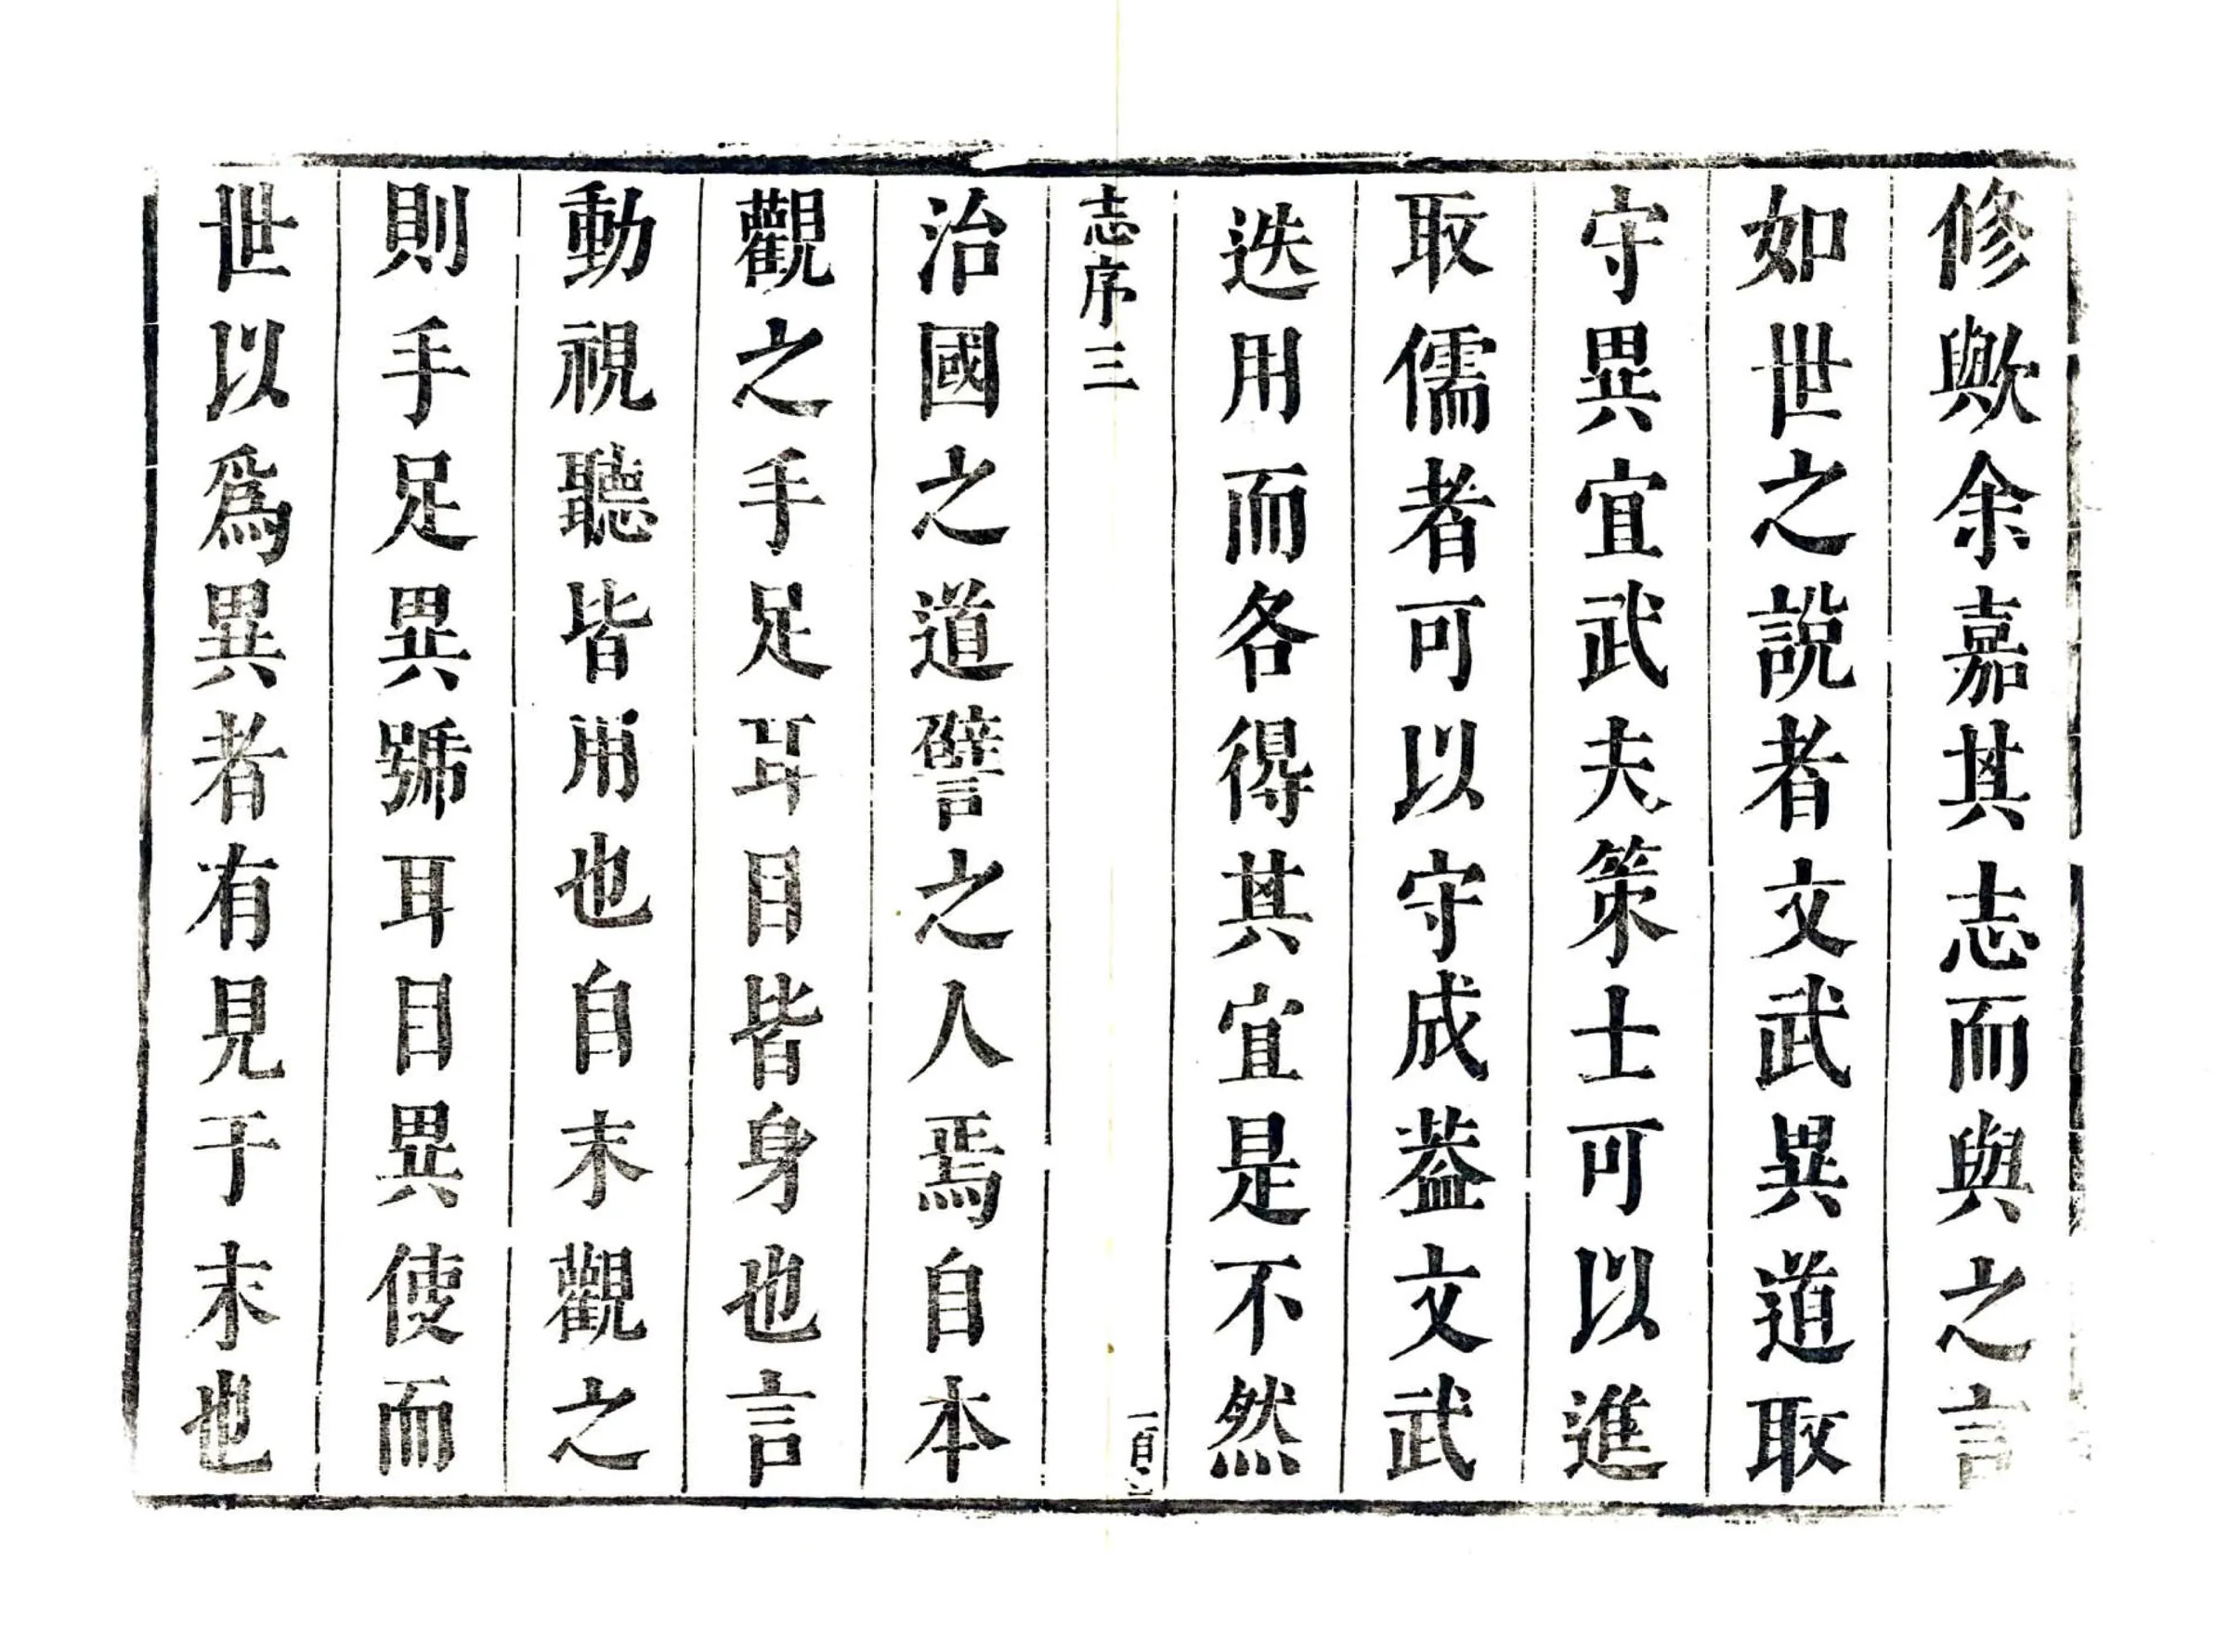 修歟余嘉其志而與之言
如世之說者文武異道取
守異宜武夫策士可以進
取儒者可以守成葢文武
迭用而各得其宜是不然
志序三
治國之道譬之人焉自本
觀之手足耳目皆身也言
動視聽皆用也自末觀之
則手足異號耳目異使而
世以爲異者有見于末也